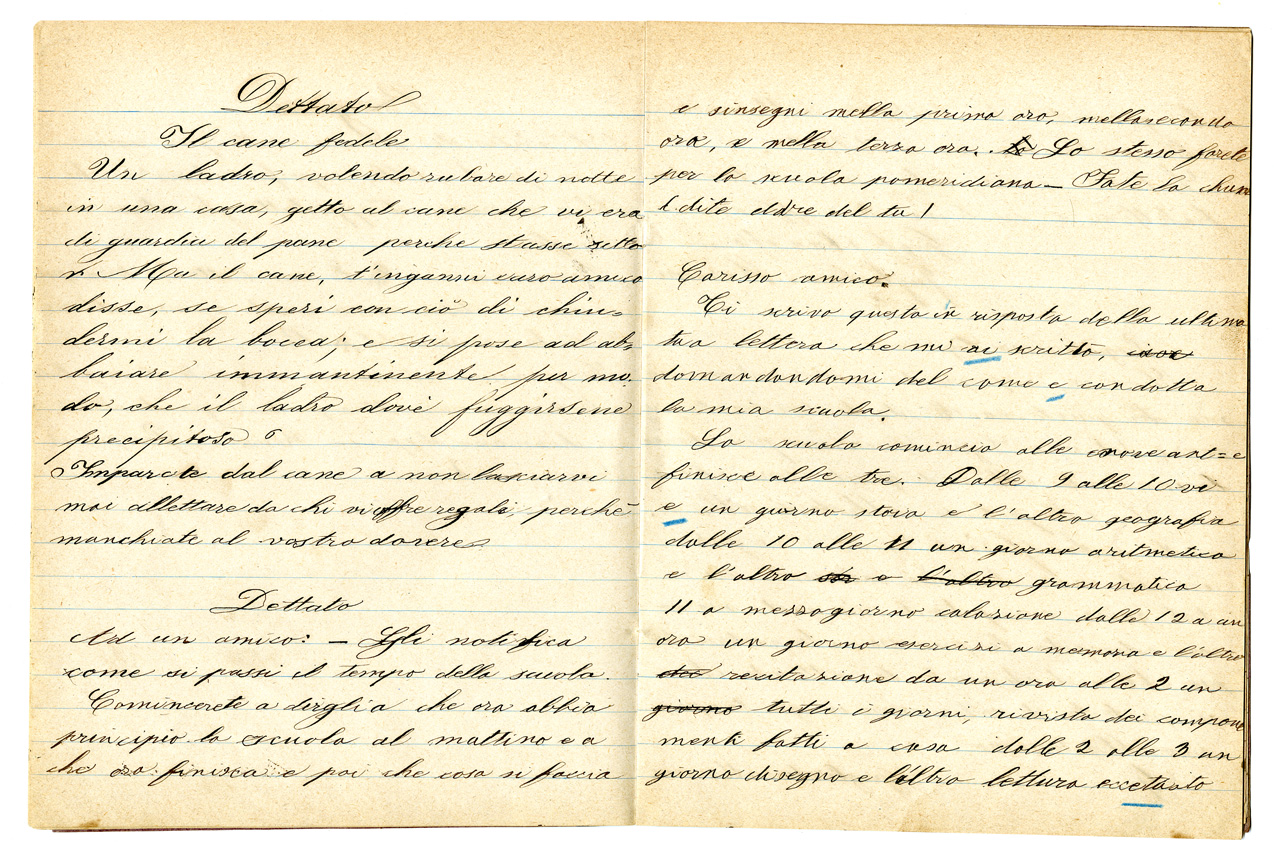 Dettato
Il cane fedele
Un ladro, volendo rubare di notte
in una casa, getto al cane che vi era
di guardia del pane perche stasse zitto
Ma il cane, t'inganni caro amico
disse, se speri con ciò di chiu=
dermi la bocca; e si pose ad ab=
baiare immantinente per mo.
do, che il ladro dovè fuggirsene
precipitoso
Imparate dal cane a non lasciarvi
mai allettare da chi vi offre regali, perchè
manchiate al vostro dovere
Dettato
Ad un amico: — Gli notifica
come si passi il tempo della scuola.
Comincerete a dirglia che ora abbia
principio la scuola al mattino e a
che ora finisca e poi che cosa si faccia
e sinsegni nella prima ora, nella seconda
ora, e nella terza ora. Lo stesso farete
per la scuola pomeridiana — Fate la chiu
dite del tu!
Carisso amico.
Ti scrivo questa in risposta della ultima
tua lettera che mi ai scritto,
domandandomi del come e condotta
la mia scuola.
La scuola comincia alle nove ant=e
finisce alle tre. Dalle 9 alle 10 vi
e un giorno storia e l'altro geografia
dalle 10 alle 11 un giorno aritmetica
e l'altro o l'altro grammatica
11 a mezzogiorno colazione dalle 12 a un
ora un giorno esercizi a memoria e l'altro
recitazione da un ora alle 2 un
giorno tutti i giorni, rivista dei compone
menti fatti a casa dalle 2 alle 3 un
giorno disegno e l'altro lettura eccetauto